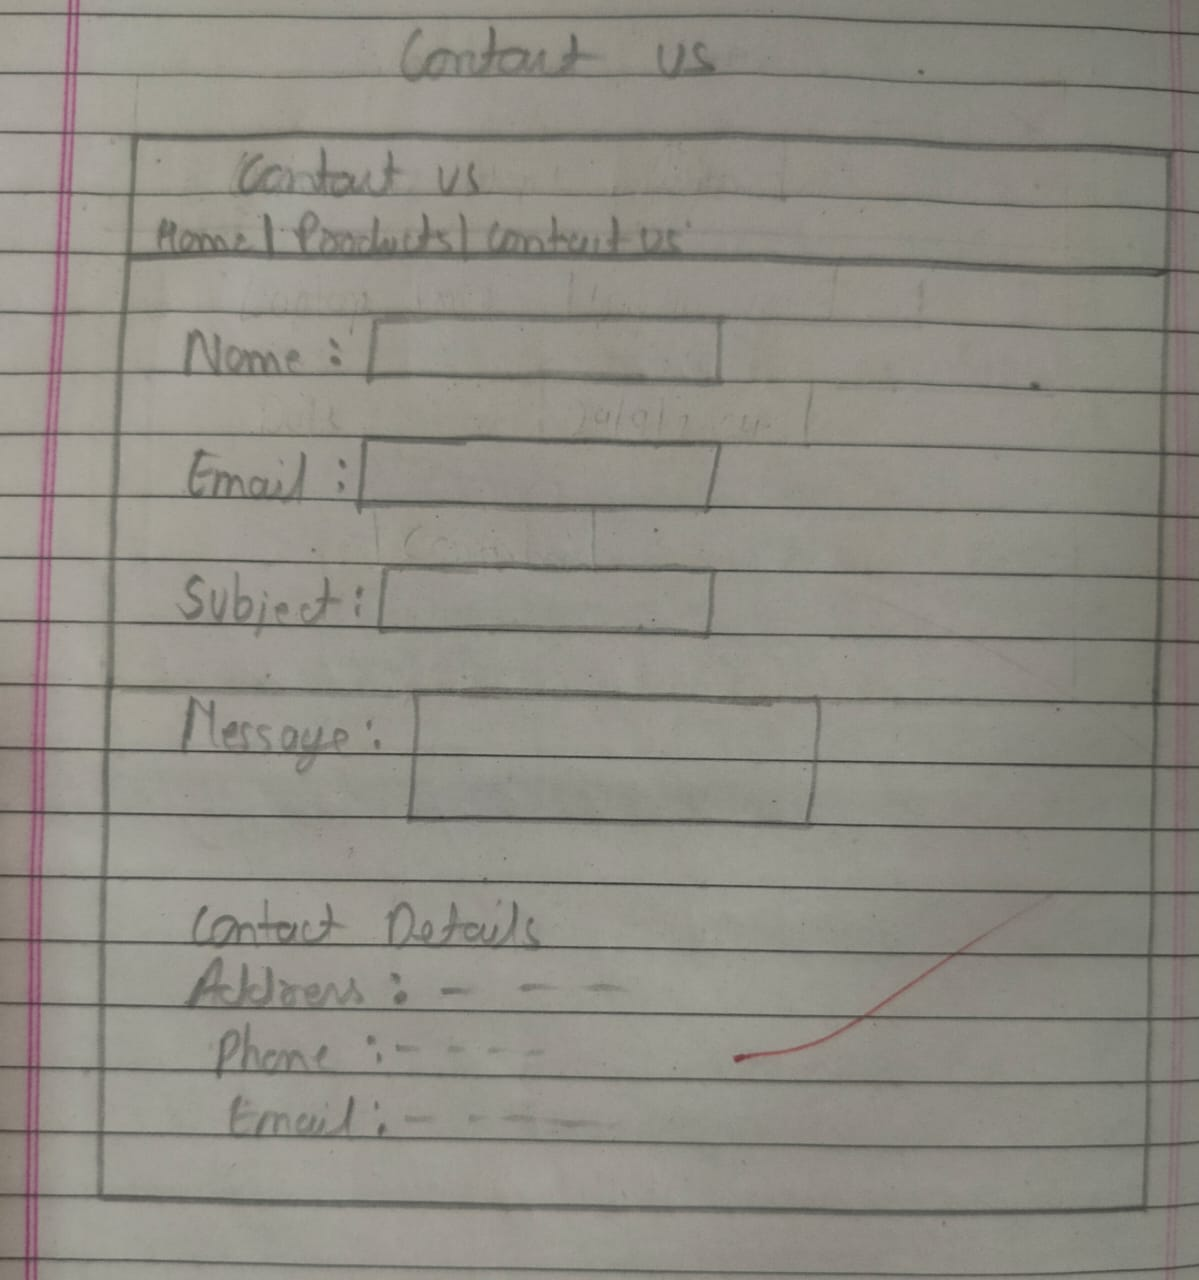 Contact us
Contact us
Home | Products | Contact us
Name :
Email :
Subject :
Message :
Contact Details
Address : - - -
Phone : - - - -
Email : - - - -